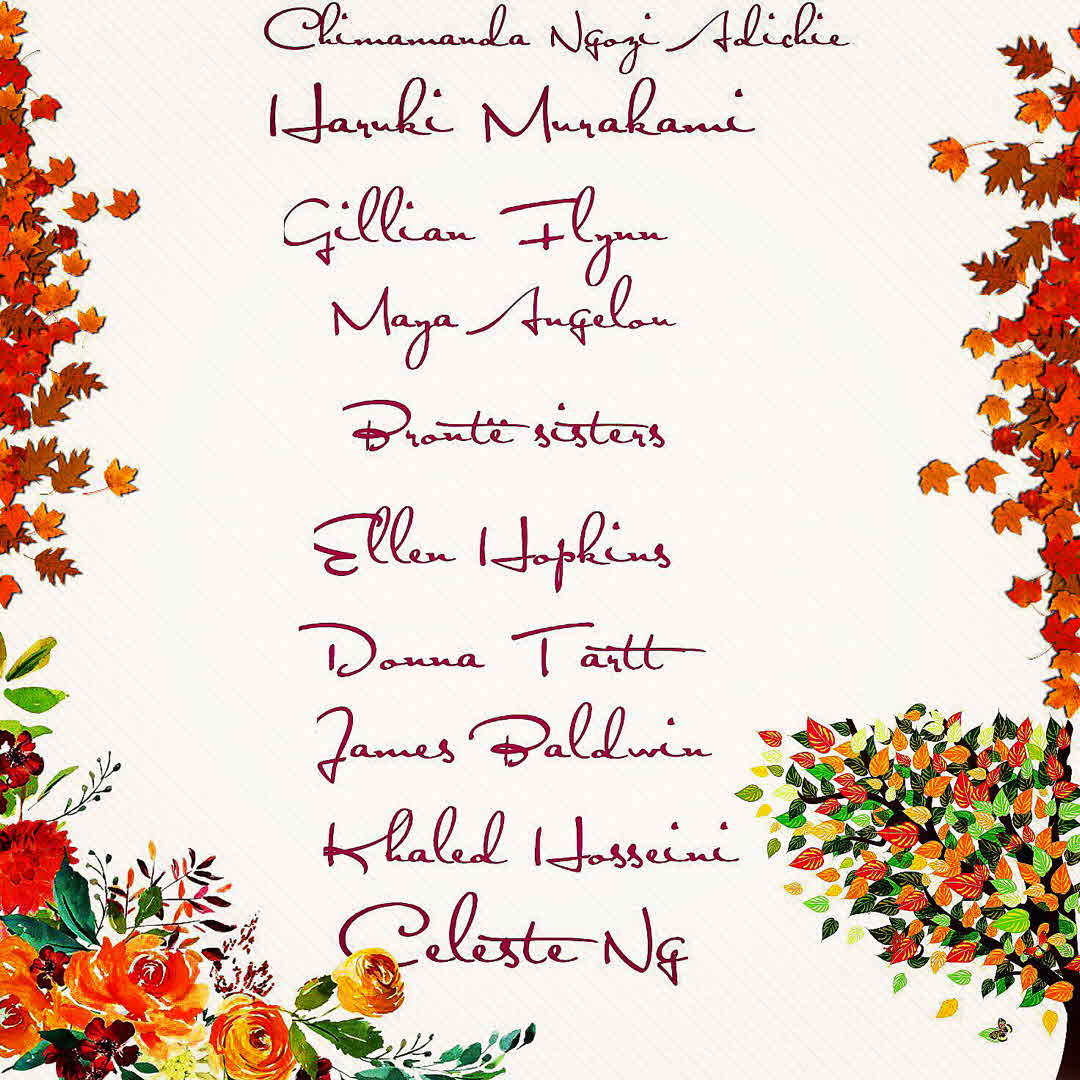 Chimamanda Ngozi Adichie
Haruki Murakami
Gillian Flynn
Maya Angelou
Brontë sisters
Ellen Hopkins
Donna Tartt
James Baldwin
Khaled Hosseini
Celeste Ng